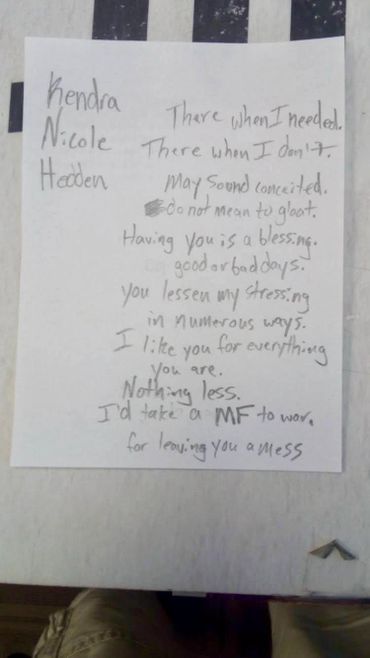 Kendra
Nicole
Hedden
There when I needed.
There when I don't.
May sound conceited.
do not mean to gloat.
Having you is a blessing.
good or bad days.
you lessen my stressing
in numerous ways.
I like you for everything
you are.
Nothing less.
I'd take a MF to war.
for leaving you a mess